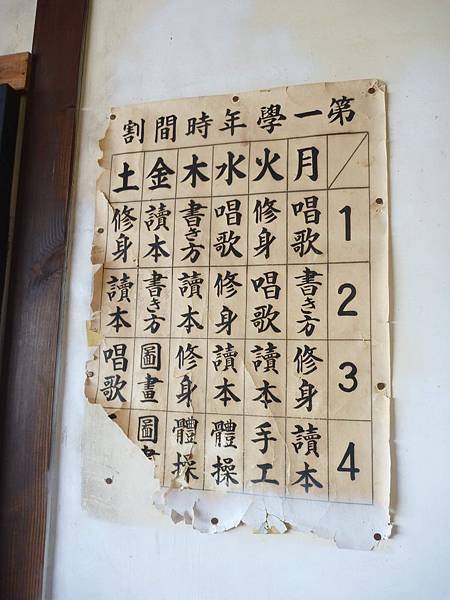 第一學年時間割
月 火 水 木 金 土
1 唱歌 修身 唱歌 書き方 讀本 修身
2 書き方 唱歌 修身 讀本 書き方 讀本
3 修身 讀本 讀本 修身 圖畫 唱歌
4 讀本 手工 體操 體操 圖